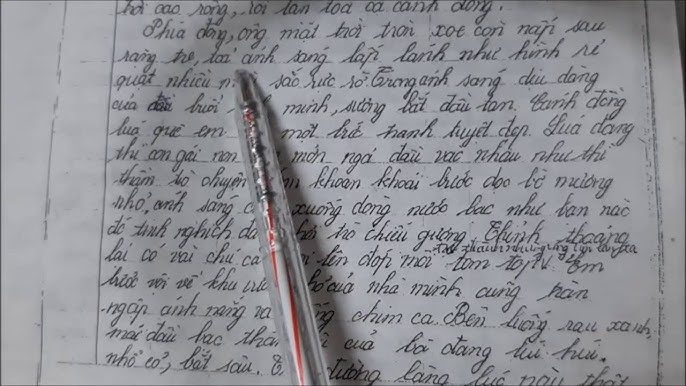 hơi cao rộng, rồi lan toả cả cánh đồng.
Phía đông, ông mặt trời tròn xoe còn nấp sau
rặng tre, toả ánh sáng lấp lánh như hình rẻ
quạt nhiều m sắc rực rỡ. Trong ánh sáng dịu dàng
của buổi minh, sương bắt đầu tan. Cánh đồng
lúa quê em một bức tranh tuyệt đẹp. Lúa đang
thì con gái non mởn ngả đầu vào nhau như thì
thầm trò chuyện. khoan khoái bước dọc bờ mương
nhỏ, ánh sáng c xuống dòng nước bạc như bạn nào
đó tinh nghịch đa trò chiếu gương. Thỉnh thoảng
lại có vài chú cá lên đớp mồi tôm tớp. Em
bước vội về khu vườn của nhà mình cũng tràn
ngập ánh nắng và chim ca. Bên luống rau xanh,
mái đầu bạc của bà đang lúi húi
nhổ cỏ, bắt sâu. đường làng lúc này